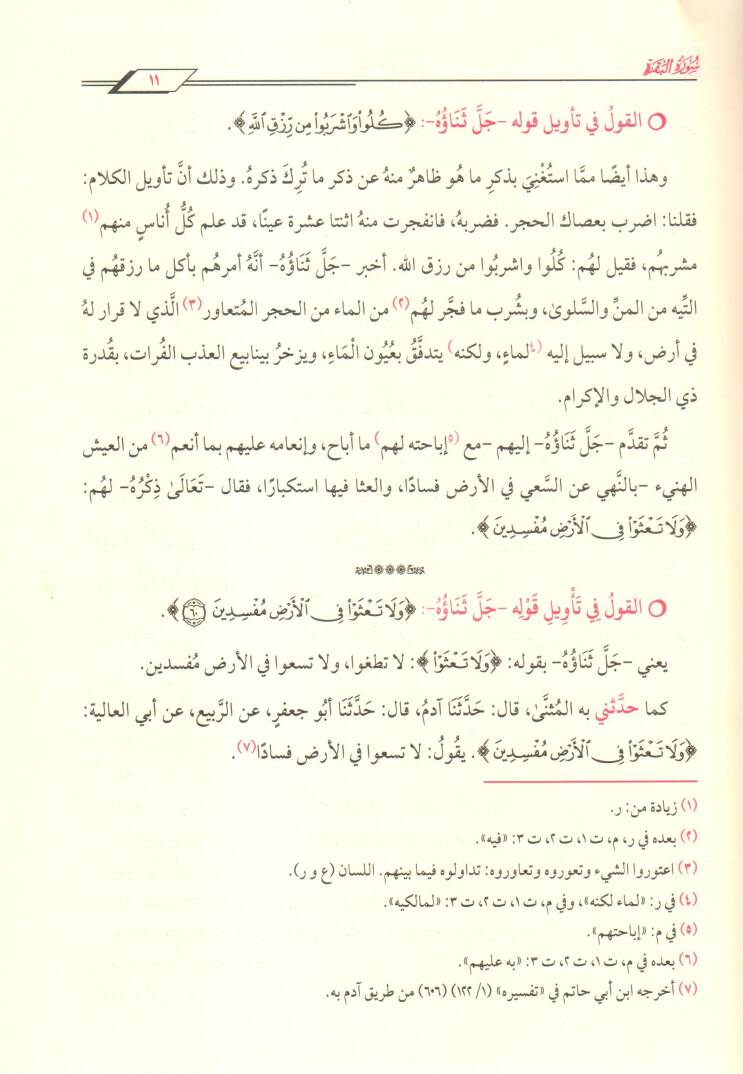 سُورَةُ البَقَرَةِ
١١
القولُ في تأويل قوله -جَلَّ ثَنَاؤُهُ-: ﴿كُلُوا۟ وَٱشْرَبُوا۟ مِن رِّزْقِ ٱللَّهِ﴾.
وهذا أيضًا ممَّا استُغْنِيَ بذكرِ ما هُو ظاهرٌ منهُ عن ذكر ما تُرِكَ ذكرهُ. وذلك أنَّ تأويل الكلام:
فقلنا: اضرب بعصاك الحجر. فضربهُ، فانفجرت منهُ اثنتا عشرة عينًا، قد علم كُلُّ أُناسٍ منهم(١)
مشربهُم، فقيل لهُم: كُلُوا واشربُوا من رزق الله. أخبر -جَلَّ ثَنَاؤُهُ- أنَّهُ أمرهُم بأكل ما رزقهُم في
التِّيه من المنِّ والسَّلوىٰ، وبشُرب ما فجَّر لهُم(٢) من الماء من الحجر المُتعاور(٣) الَّذي لا قرار لهُ
في أرض، ولا سبيل إليه (٤لماءٍ، ولكنه) يتدفَّقُ بعُيُون الْمَاءِ، ويزخرُ بينابيع العذب الفُرات، بقُدرة
ذي الجلال والإكرام.
ثُمَّ تقدَّم -جَلَّ ثَنَاؤُهُ- إليهم -مع (٥إباحته لهم) ما أباح، وإنعامه عليهم بما أنعم(٦) من العيش
الهنيء -بالنَّهي عن السَّعي في الأرض فسادًا، والعثا فيها استكبارًا، فقال -تَعَالَىٰ ذِكْرُهُ- لهُم:
﴿وَلَا تَعْثَوْا۟ فِى ٱلْأَرْضِ مُفْسِدِينَ﴾.
القولُ فِي تَأْوِيلِ قَوْلِه -جَلَّ ثَنَاؤُهُ-: ﴿وَلَا تَعْثَوْا۟ فِى ٱلْأَرْضِ مُفْسِدِينَ ٦٠﴾.
يعني -جَلَّ ثَنَاؤُهُ- بقوله: ﴿وَلَا تَعْثَوْا۟﴾: لا تطغوا، ولا تسعوا في الأرض مُفسدين.
كما حدَّثني به المُثنَّىٰ، قال: حَدَّثَنَا آدمُ، قال: حَدَّثَنَا أبُو جعفرٍ، عن الرَّبيع، عن أبي العالية:
﴿وَلَا تَعْثَوْا۟ فِى ٱلْأَرْضِ مُفْسِدِينَ﴾. يقُولُ: لا تسعوا في الأرض فسادًا(٧).
(١) زيادة من: ر.
(٢) بعده في ر، م، ت ١، ت ٢، ت ٣: «فيه».
(٣) اعتوروا الشيء وتعوروه وتعاوروه: تداولوه فيما بينهم. اللسان (ع و ر).
(٤) في ر: «لماء لكنه»، وفي م، ت ١، ت ٢، ت ٣: «لمالكيه».
(٥) في م: «إباحتهم».
(٦) بعده في م، ت ١، ت ٢، ت ٣: «به عليهم».
(٧) أخرجه ابن أبي حاتم في «تفسيره» (١/ ١٢٢) (٦٠٦) من طريق آدم به.